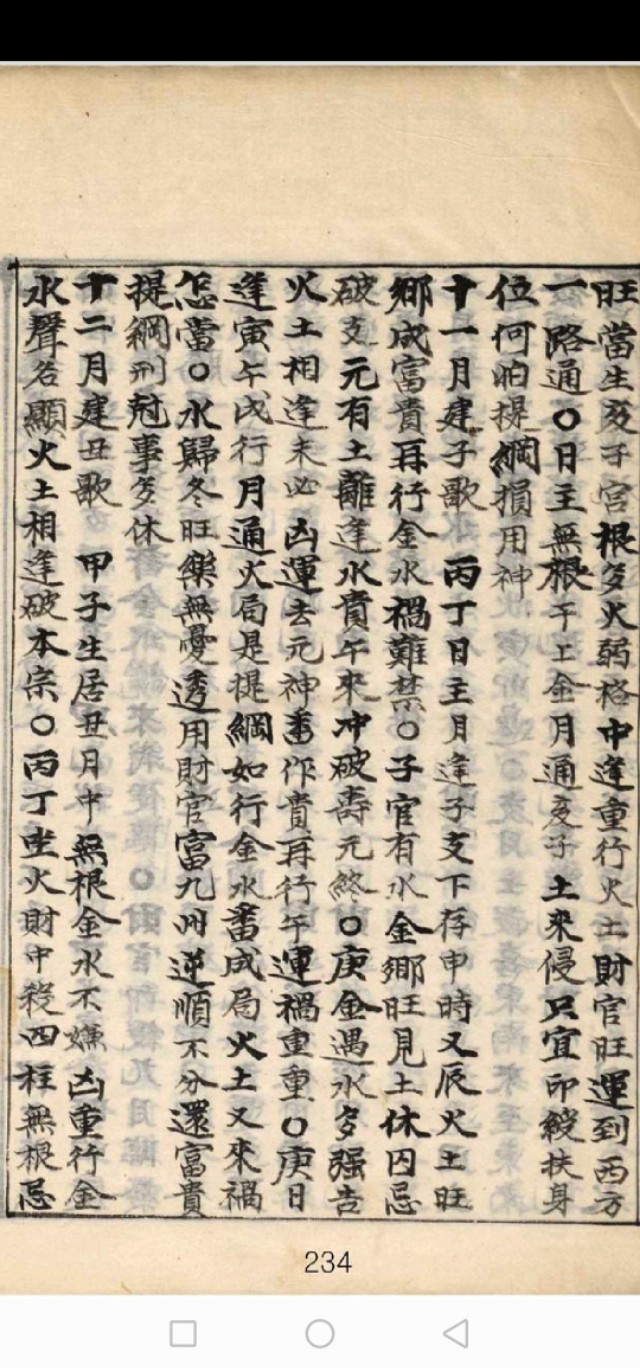 旺當生亥子宮根多火弱格中逢重行火土財官旺運到西方
一路通〇日主無根干上金月通亥子土來侵只宜印綬扶身
位何怕提綱損用神
十一月建子歌 丙丁日主月逢子支下存申時又辰火土旺
鄉成富貴再行金水禍難禁〇子官有水金鄉旺見土休囚忌
破支元有土離逢水貴午來冲破壽元終〇庚金遇水多强吉
火土相逢未必凶運去元神畨作貴再行午運禍重重〇庚日
逢寅午戌行月通火局是提綱如行金水畨成局火土又來禍
怎當〇水歸冬旺樂無憂透用財官富九州逆順不分還富貴
提綱刑尅事多休
十二月建丑歌 甲子生居丑月中無根金水不嫌凶重行金
水聲名顯火土相逢破本宗〇丙丁坐火財中殺四柱無根忌
234